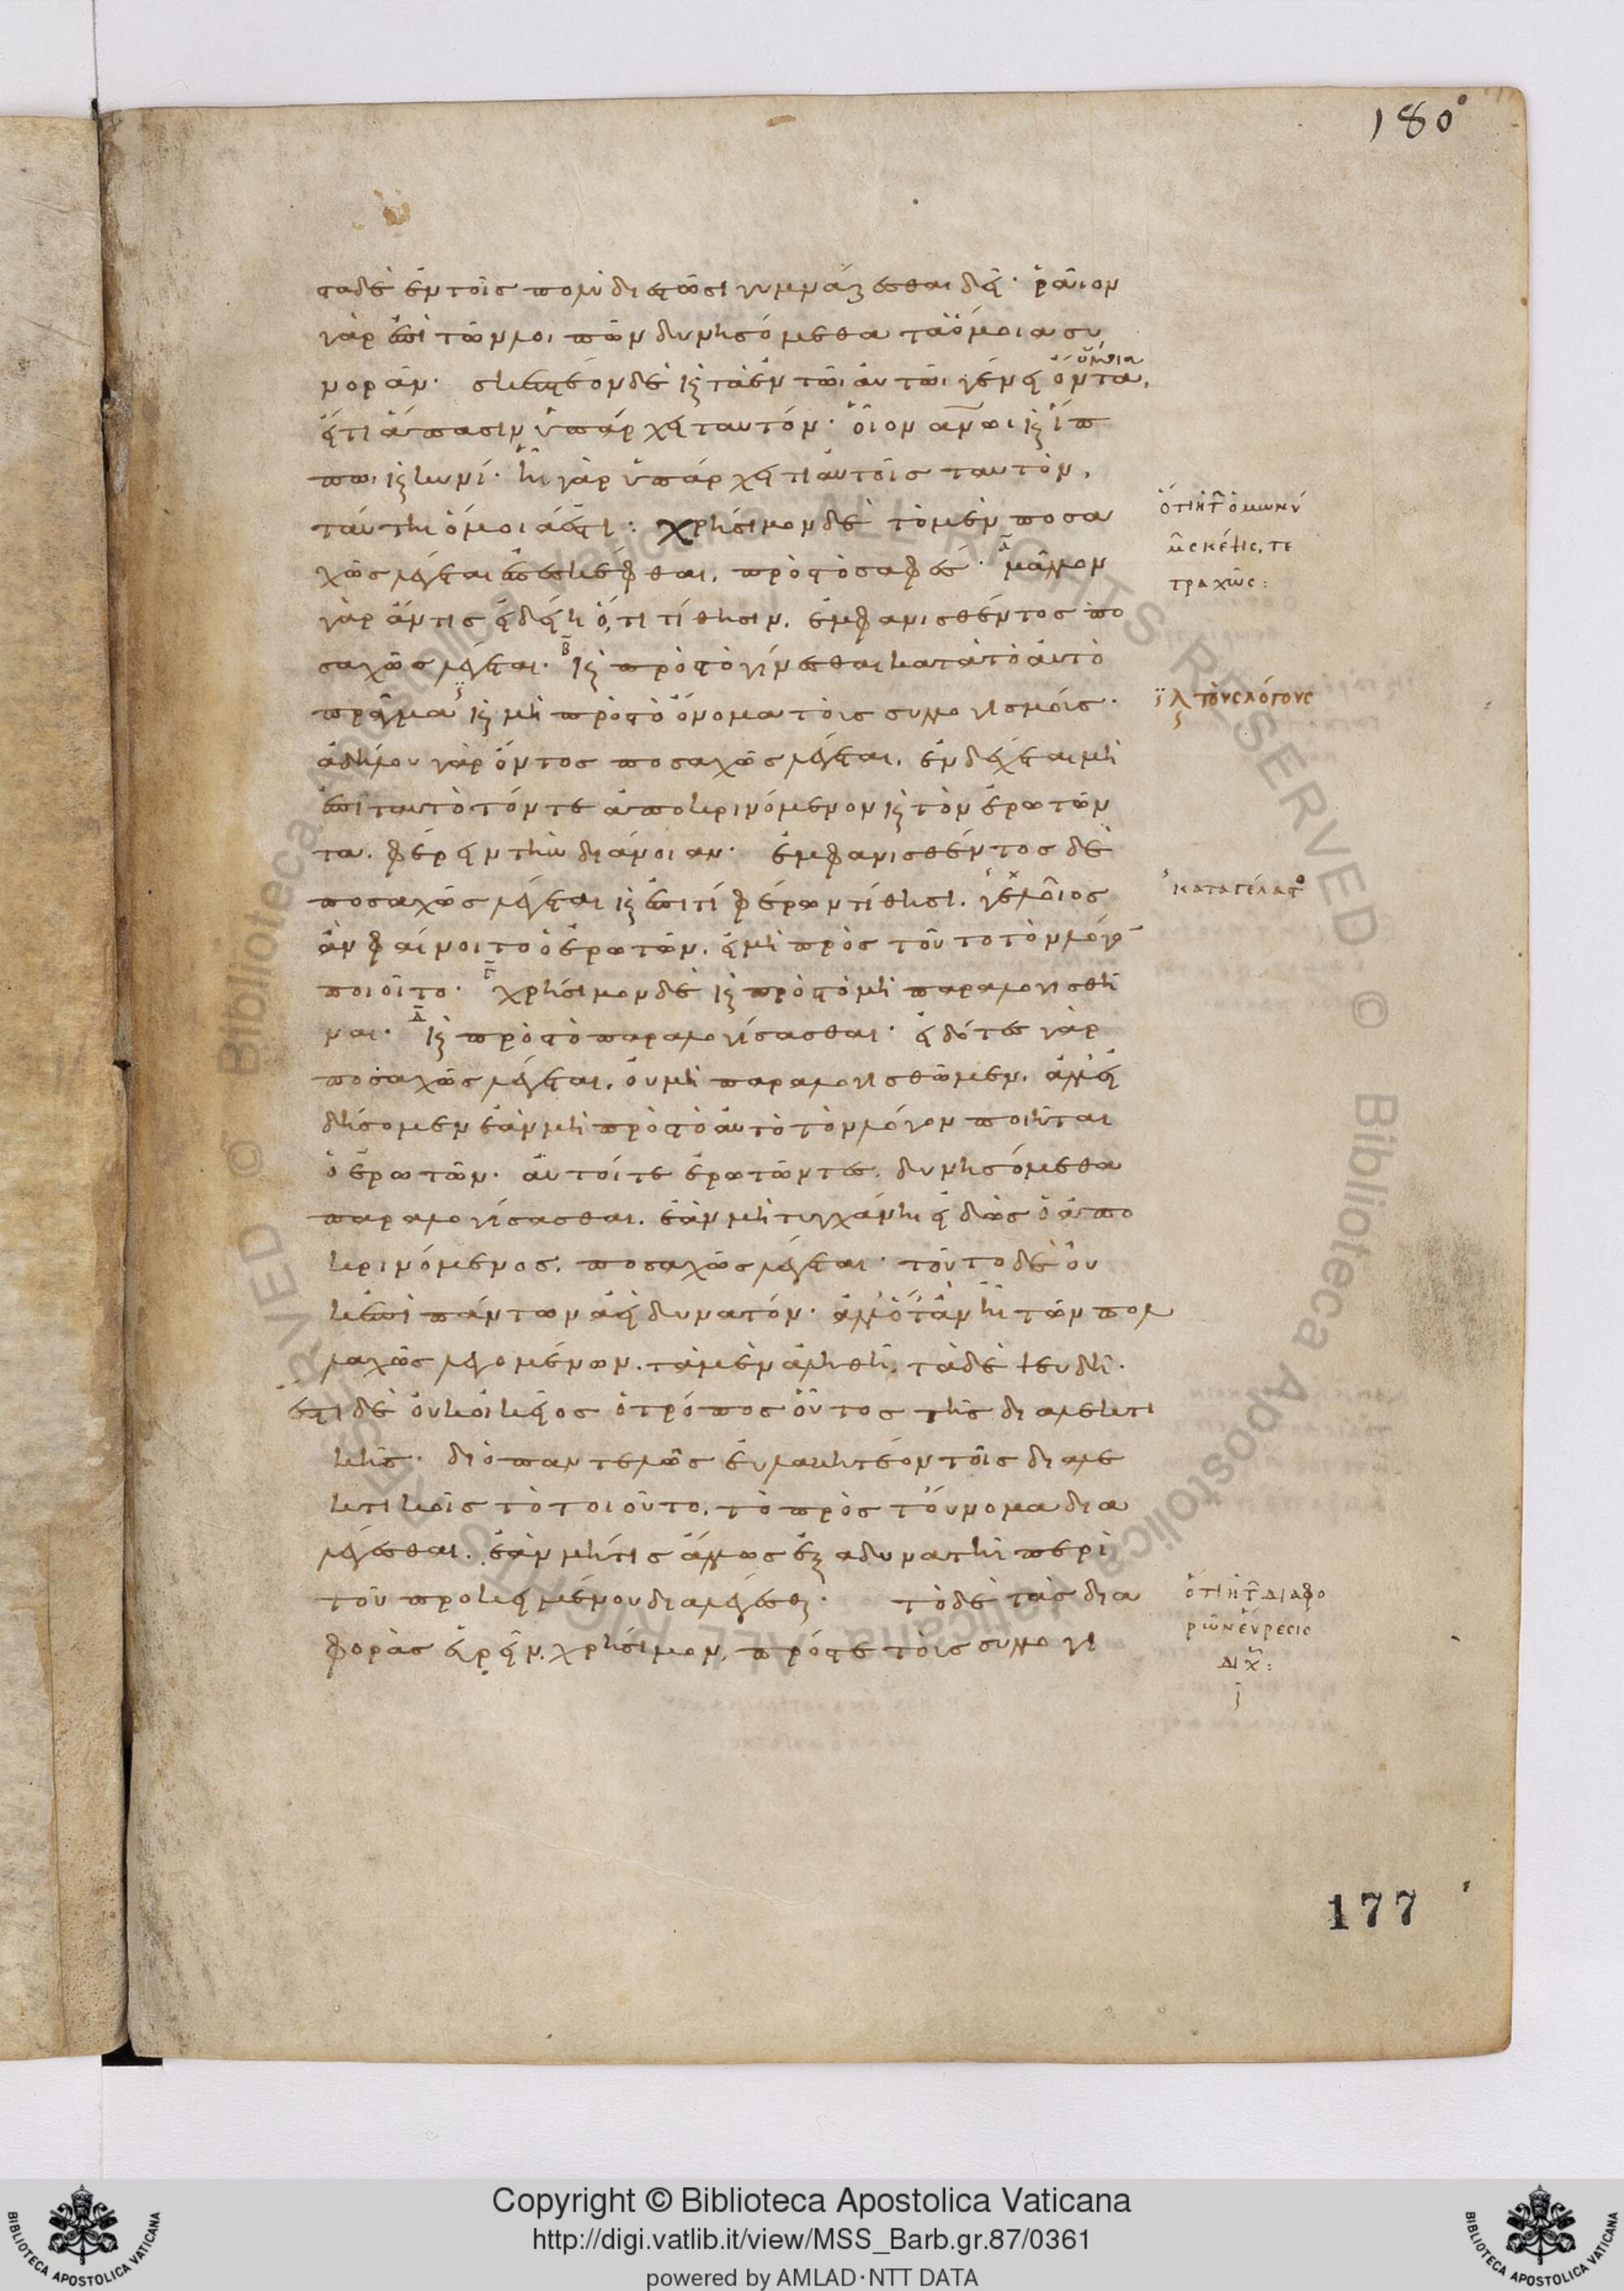 180
στα δὲ ἐν τοῖς πολὺ διεστῶσι γυμνάζεσθαι δεῖ· ῥᾶιον
γὰρ ἐπὶ τῶν λοιπῶν δυνησόμεθα τὰ ὅμοια συ
νορᾶν· σκεπτέον δὲ κ(αὶ) τὰ ἐν τῶι αὐτῶι γένει ὄντα,
εἴ τι ἅπασιν ὑπάρχει ταυτόν· οἷον ἀν(θρώπ)ωι κ(αὶ) ἵπ
πωι κ(αὶ) κυνί· ἧι γὰρ ὑπάρχει τι αὐτοῖς ταυτόν,
ταύτηι ὅμοιά ἐστι: χρήσιμον δὲ τὸ μὲν ποσα
χῶς λέγεται ἐπεσκέφθαι, πρός τὸ σαφές· Α μᾶλλον
γὰρ ἄν τις εἰδείη ὅ,τι τίθησιν, ἐμφανισθέντος πο
σαχῶς λέγεται· Β κ(αὶ) πρὸς τὸ γίνεσθαι κατ' αὐτὸ τὸ
πρᾶγμα κ(αὶ) μὴ πρὸς τὸ ὄνομα τοὺς συλλογισμούς·
ἀδήλου γὰρ ὄντος ποσαχῶς λέγεται, ἐνδέχεται μὴ
ἐπὶ ταυτὸ τόν τε ἀποκρινόμενον κ(αὶ) τὸν ἐρωτῶν
τα, φέρειν τὴν διάνοιαν· ἐμφανισθέντος δὲ
ποσαχῶς λέγεται κ(αὶ) ἐπὶ τί φέρων τίθησι, γελοῖος
ἂν φαίνοιτο ὁ ἐρωτῶν, εἰ μὴ πρὸς τοῦτο τὸν λόγο(ν)
ποιοῖτο· Γ χρήσιμον δὲ κ(αὶ) πρὸς τὸ μὴ παραλογισθῆ
ναι· Δ κ(αὶ) πρὸς τὸ παραλογίσασθαι· εἰδότες γὰρ
ποσαχῶς λέγεται, οὐ μὴ παραλογισθῶμεν, ἀλλ' εἰ
δήσομεν ἐὰν μὴ πρὸς τὸ αὐτὸ τὸν λόγον ποιῆται
ὁ ἐρωτῶν· αὐτοί τε ἐρωτῶντες, δυνησόμεθα
παραλογίσασθαι, ἐὰν μὴ τυγχάνηι εἰδὼς ὁ ἀπο
κρινόμενος, ποσαχῶς λέγεται· τοῦτο δὲ οὐ
κ ἐπὶ πάντων ἀεὶ δυνατόν· ἀλλ' ὅταν ἦι τῶν πολ
λαχῶς λεγομένων, τὰ μὲν ἀληθῆ, τὰ δὲ ψευδῆ·
ἔστι δὲ οὐκ οἰκεῖος ὁ τρόπος οὗτος τῆς διαλεκτι
κῆς· διὸ παντελῶς εὐλαβητέον τοῖς διαλε
κτικοῖς τὸ τοιοῦτο, τὸ πρὸς τοὔνομα δια
λέγεσθαι, ἐὰν μή τις ἄλλως ἐξαδυνατῆι περὶ
τοῦ προκειμένου διαλέγεσθ(αι)· τὸ δὲ τὰς δια
φορὰς εὑρεῖν, χρήσιμον, πρός τε τοὺς συλλογι
ὅτι ἡ τ(ῶν) ὁμωνύ
μ(ων) σκέψις, τε
τραχῶς:
τοὺς λόγους
καταγέλαστο(ς)
ὅτι ἡ τ(ῶν) διαφο
ρῶν εὕρεσις
διχ(ῶς):
177
Copyright © Biblioteca Apostolica Vaticana
http://digi.vatlib.it/view/MSS_Barb.gr.87/0361
powered by AMLAD·NTT DATA
BIBLIOTECA APOSTOLICA VATICANA
BIBLIOTECA APOSTOLICA VATICANA
© Biblioteca Apostolica Vaticana ALL RIGHTS RESERVED © Biblioteca Apostolica Vaticana ALL RIGHTS RESERVED